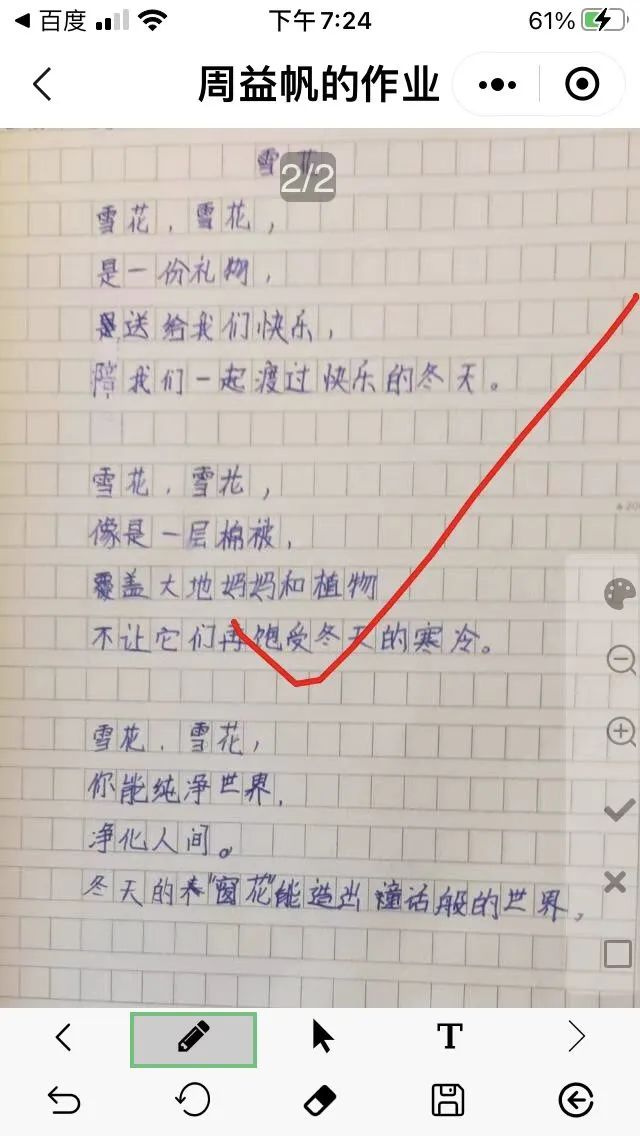 百度
下午7:24
61%
周益帆的作业
雪
2/2
雪花，雪花，
是一份礼物，
是送给我们快乐，
陪我们一起渡过快乐的冬天。
雪花，雪花，
像是一层棉被，
覆盖大地妈妈和植物
不让它们再饱受冬天的寒冷。
雪花，雪花，
你能纯净世界，
净化人间。
冬天的"窗花"能造出童话般的世界。
T